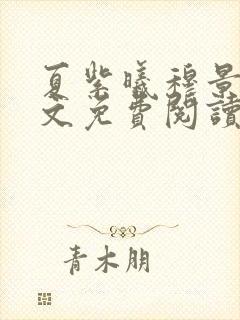 夏紫曦穆景
文免费阅读
青木朋